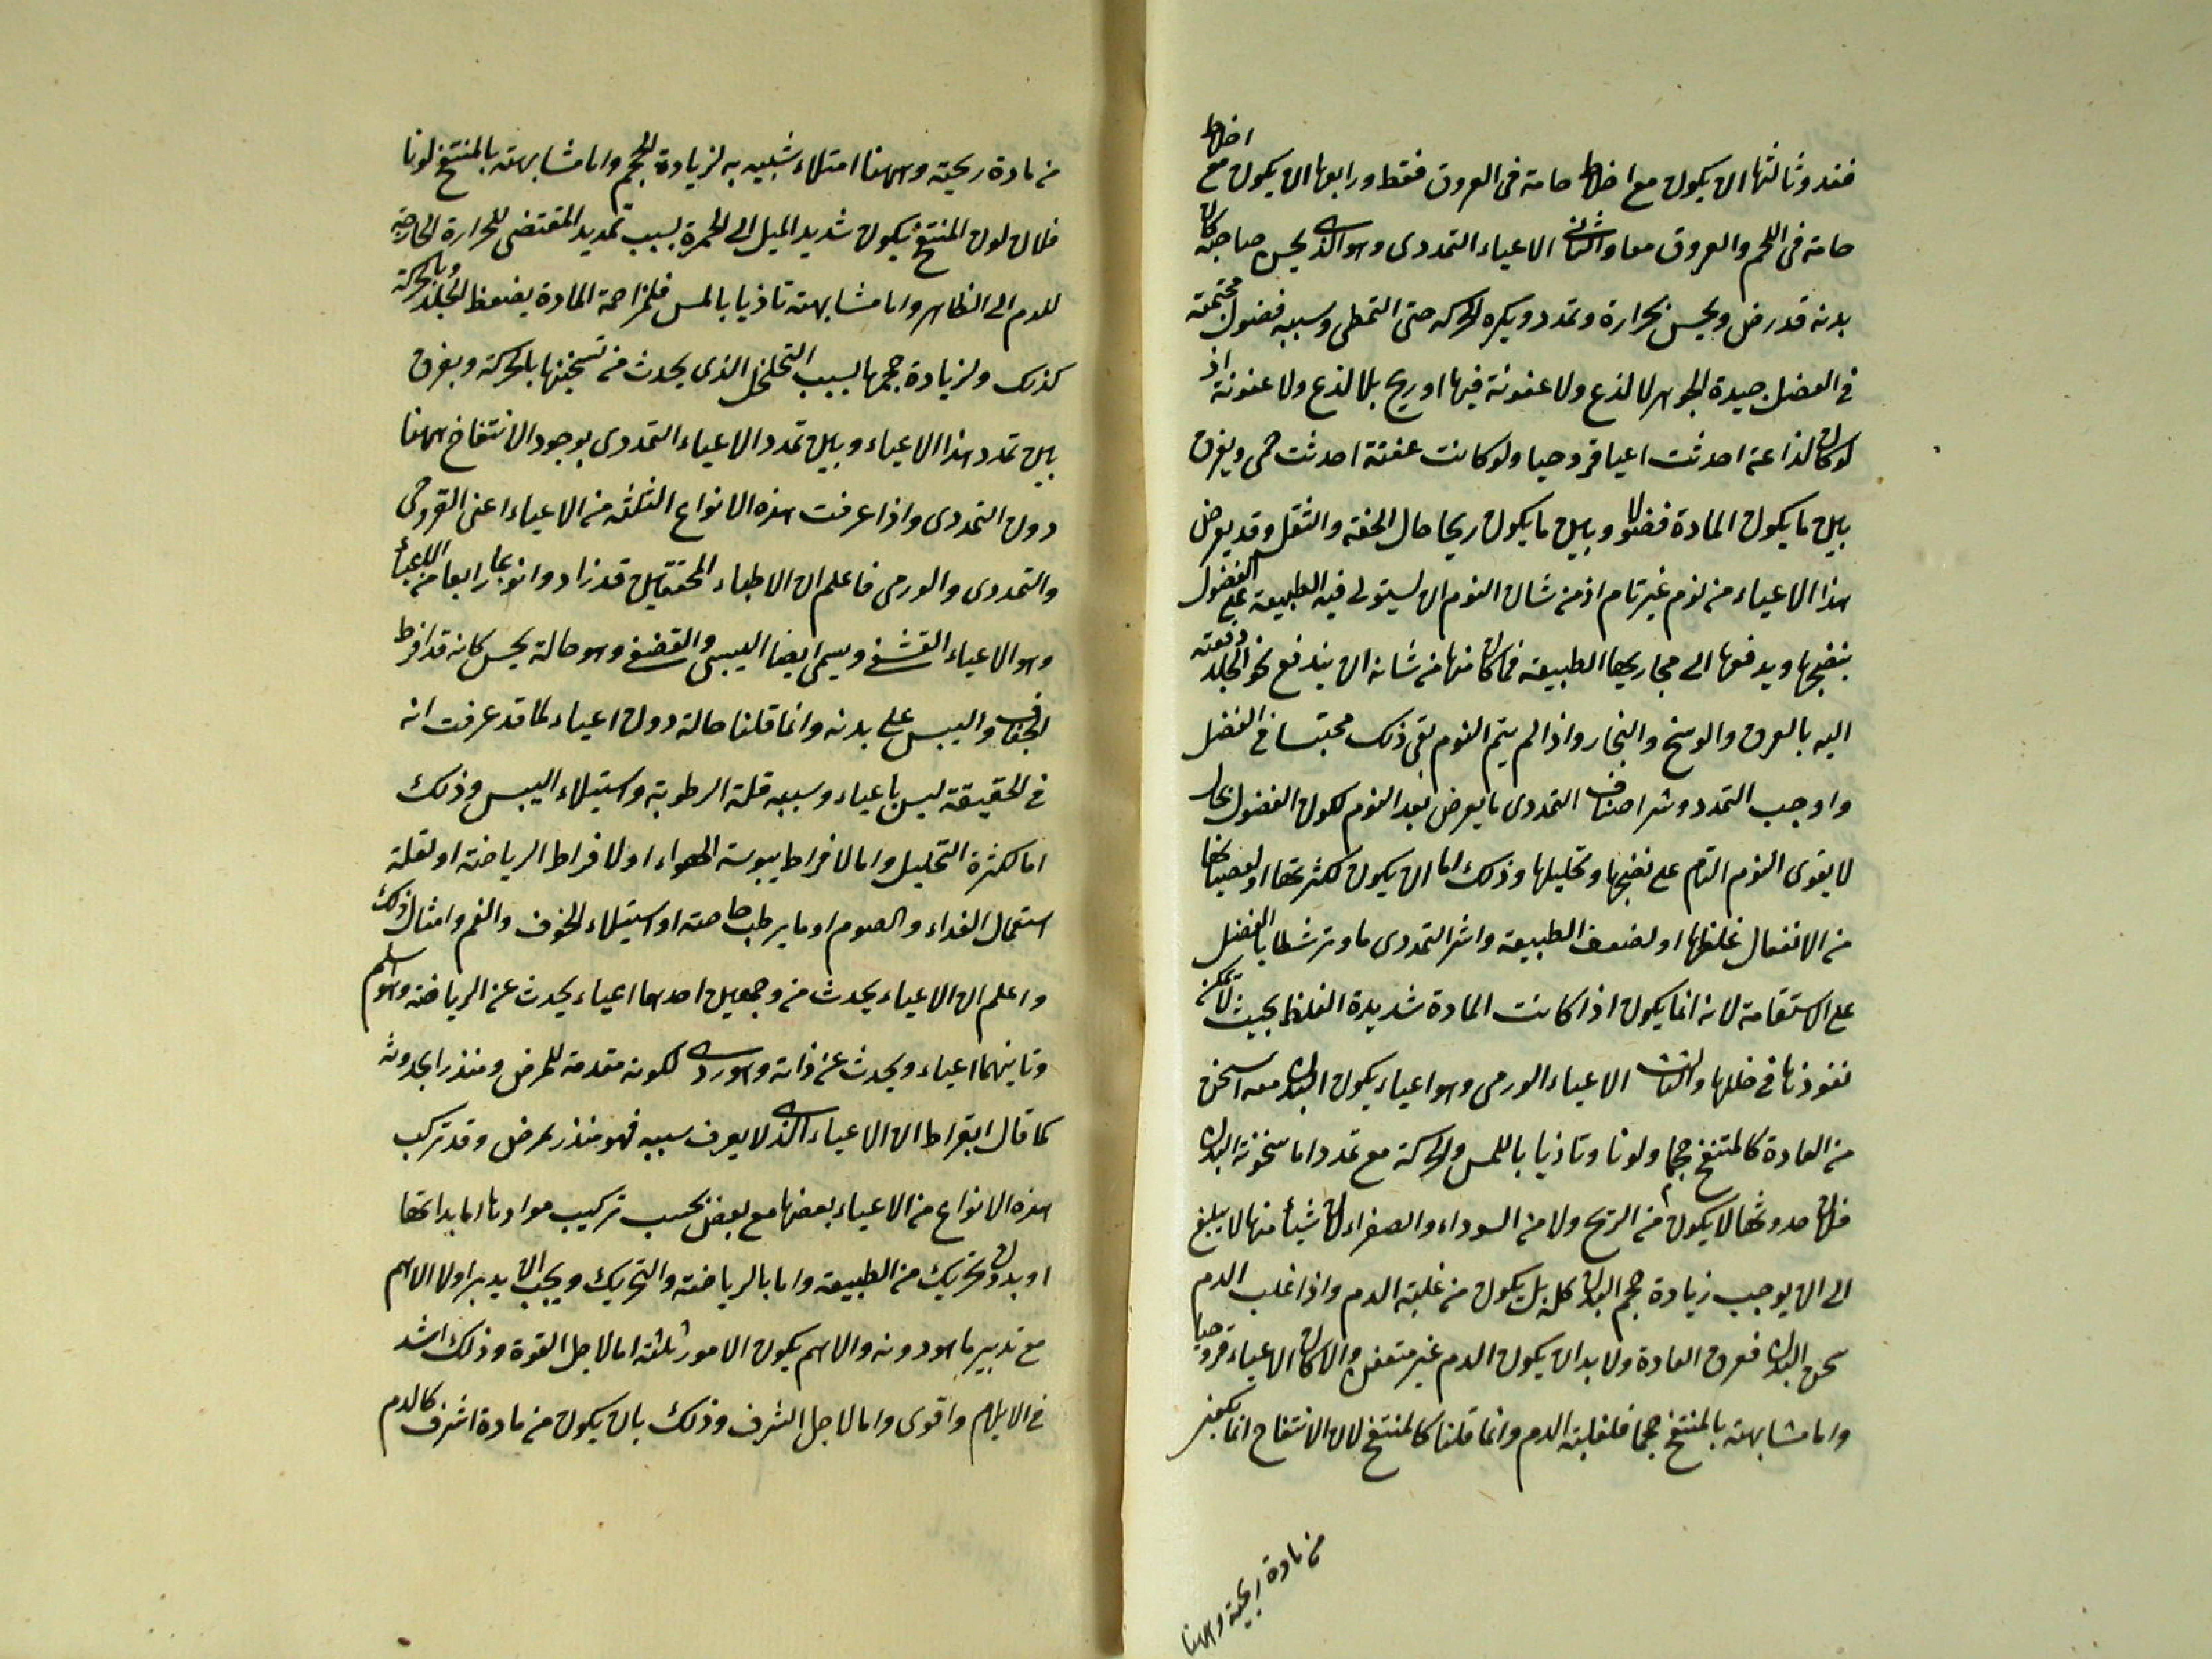 فقد وثالثها ان يكون مع اخلاط خامة في العروق فقط ورابعها ان يكون مع اخلاط
خامة في اللحم والعروق معا والثاني الاعياء التمددى وهو الذى يحس صاحبه كان
بدنه قد رض ويحس بحرارة وتمدد ويكره الحركه حتى التمطى وسببه فضول محتبسة
في العضل جيدة الجوهر لا لذع ولا عفونة فيها او ريح بلا لذع ولا عفونة اذ
لو كان لذاعة احدثت اعيا قروحيا ولو كانت عفنة احدثت حمى ويفرق
بين ما يكون المادة فضولا وبين ما يكون ريحا حال الخفة والثقل وقد يعرض
هذا الاعياء من نوم غير تام اذ من شان النوم ان يستولى فيه الطبيعة على الفضول
ينضجها ويدفعها الى مجاريها الطبيعة فما كان منها من شانه ان يندفع نحو الجلد دفعته
اليه بالعرق والوسخ والبخار واذا لم يتم النوم بقى ذلك محتبسا في العضل
واوجب التمدد وشر اصناف التمددى ما يعرض بعد النوم لكون الفضول بحال
لا يقوى النوم التام على نضجها وتحليلها وذلك اما ان يكون لكثرتها او لعصيانها
من الانفعال لغلظها او لضعف الطبيعة واشر التمددى ما وتر شظايا العضل
على الاستقامة لانه انما يكون اذا كانت المادة شديدة الغلظ بحيث لا يمكن
نفوذها في خللها والثالث الاعياء الورمى وهو اعياء يكون البدن معه اسخن
من العادة كالمنتفخ حجما ولونا وتاذيا باللمس والحركة مع تمدد اما سخونة البدن
فلان حدوثها لا يكون من الريح ولا من السوداء والصفراء لان شيأ منها لا يبلغ
الى ان يوجب زيادة حجم البدن كله بل يكون من غلبة الدم واذا غلب الدم
سخن البدن فوق العادة ولا بد ان يكون الدم غير متعفن والا كان الاعياء قروحيا
واما مشابهته بالمنتفخ حجما فلغلبة الدم وانما قلنا كالمنتفخ لان الانتفاخ انما يكون
من مادة ريحية وههنا
من مادة ريحية وههنا امتلاء شبيه به لزيادة الحجم واما مشابهته بالمنتفخ لونا
فلان لون المنتفخ يكون شديد الميل الى الحمرة بسبب تمديد المقتضى للحرارة الخارجة
للدم الى الظاهر واما مشابهته تاذيا باللمس فلمزاحمة المادة بضغط الجلد وبالحركة
كذلك ولزيادة حجمها بسبب التخلخل الذى يحدث من تسخينها بالحركة ويفرق
بين تمدد هذا الاعياء وبين تمدد الاعياء التمددى بوجود الانتفاخ ههنا
دون التمددى واذا عرفت هذه الانواع الثلثة من الاعياء اعنى القروحى
والتمددى والورمى فاعلم ان الاطباء المحققين قد زادوا نوعا رابعا من الاعياء
وهو الاعياء القشفى ويسمى ايضا اليبسى والقضفى وهو حالة يحس كانه قد افرط
الجفاف واليبس على بدنه وانما قلنا حالة دون اعياء لما قد عرفت انه
في الحقيقة ليس باعياء وسببه قلة الرطوبة واستيلاء اليبس وذلك
اما لكثرة التحليل واما لافراط يبوسة الهواء او لافراط الرياضة او لقلة
استعمال الغذاء والصوم او ما يرطب خاصته او استيلاء الخوف والغم وامثال ذلك
واعلم ان الاعياء يحدث من وجهين احدهما اعياء يحدث عن الرياضة وهو اسلم
وثانيهما اعياء ويحدث عن ذاته وهو ردى لكونه مقدمة للمرض ومنذرا بحدوثه
كما قال ابقراط ان الاعياء الذى لا يعرف سببه فهو منذر بمرض وقد تركب
هذه الانواع من الاعياء بعضها مع بعض بحسب تركيب موادها اما بذاتها
او بدون تحريك من الطبيعة واما بالرياضة والتحريك ويجب ان يدبر اولا الاهم
مع تدبير ما هو دونه والاهم يكون الامور ثلثة اما لاجل القوة وذلك اشد
في الايلام واقوى واما لاجل الشرف وذلك بان يكون من مادة اشرف كالدم